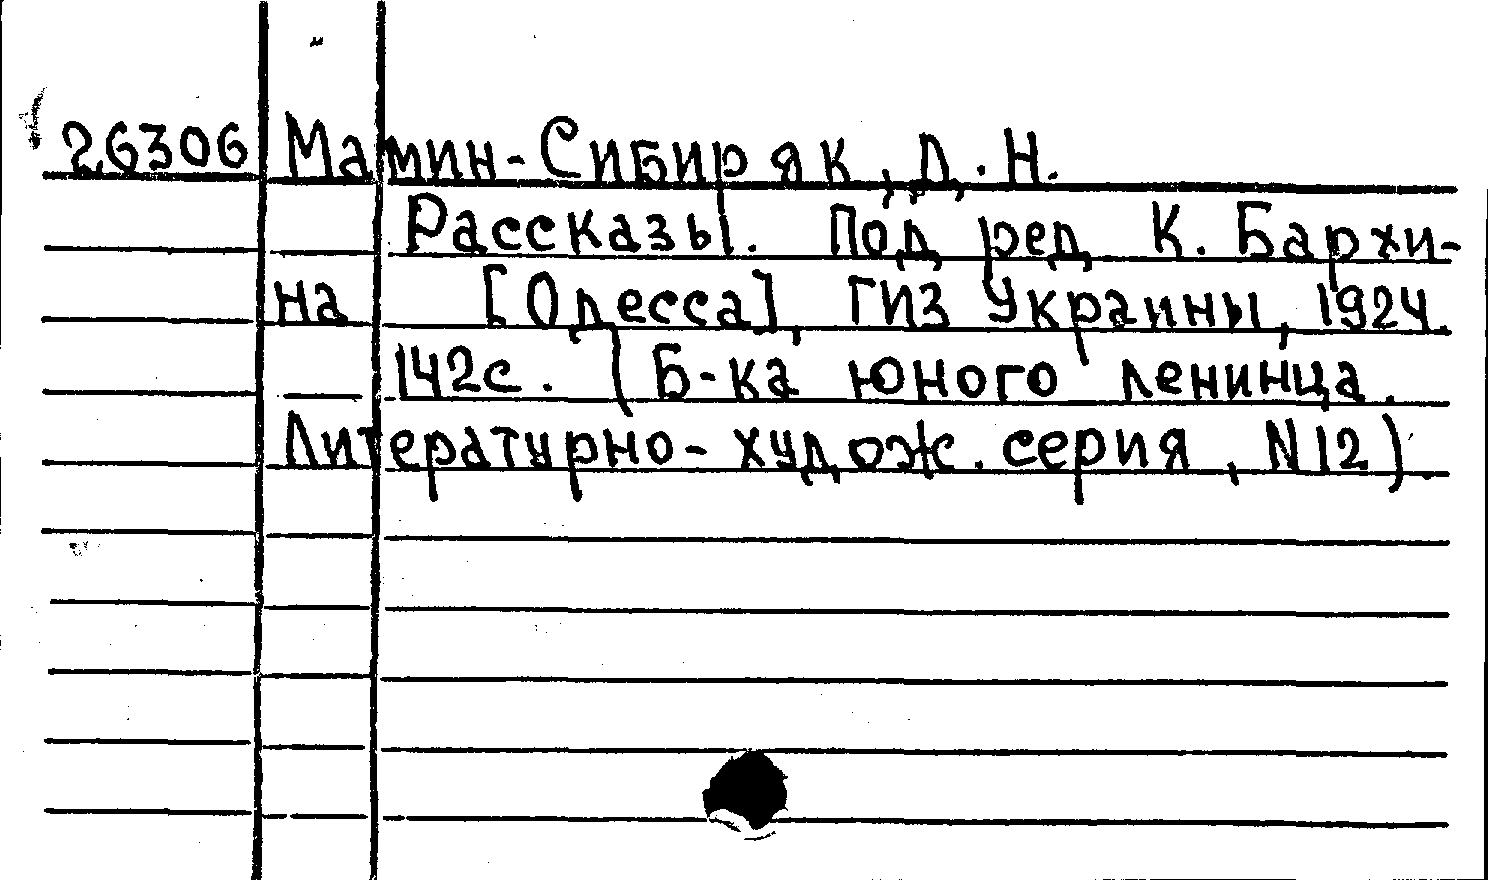 26306 Мамин-Сибиряк, Д. Н.
Рассказы. Под ред К. Бархи-
на [Одесса], ГИЗ Украины, 1924.
142с. (Б-ка юного ленинца.
Литературно-худож. серия, N12).